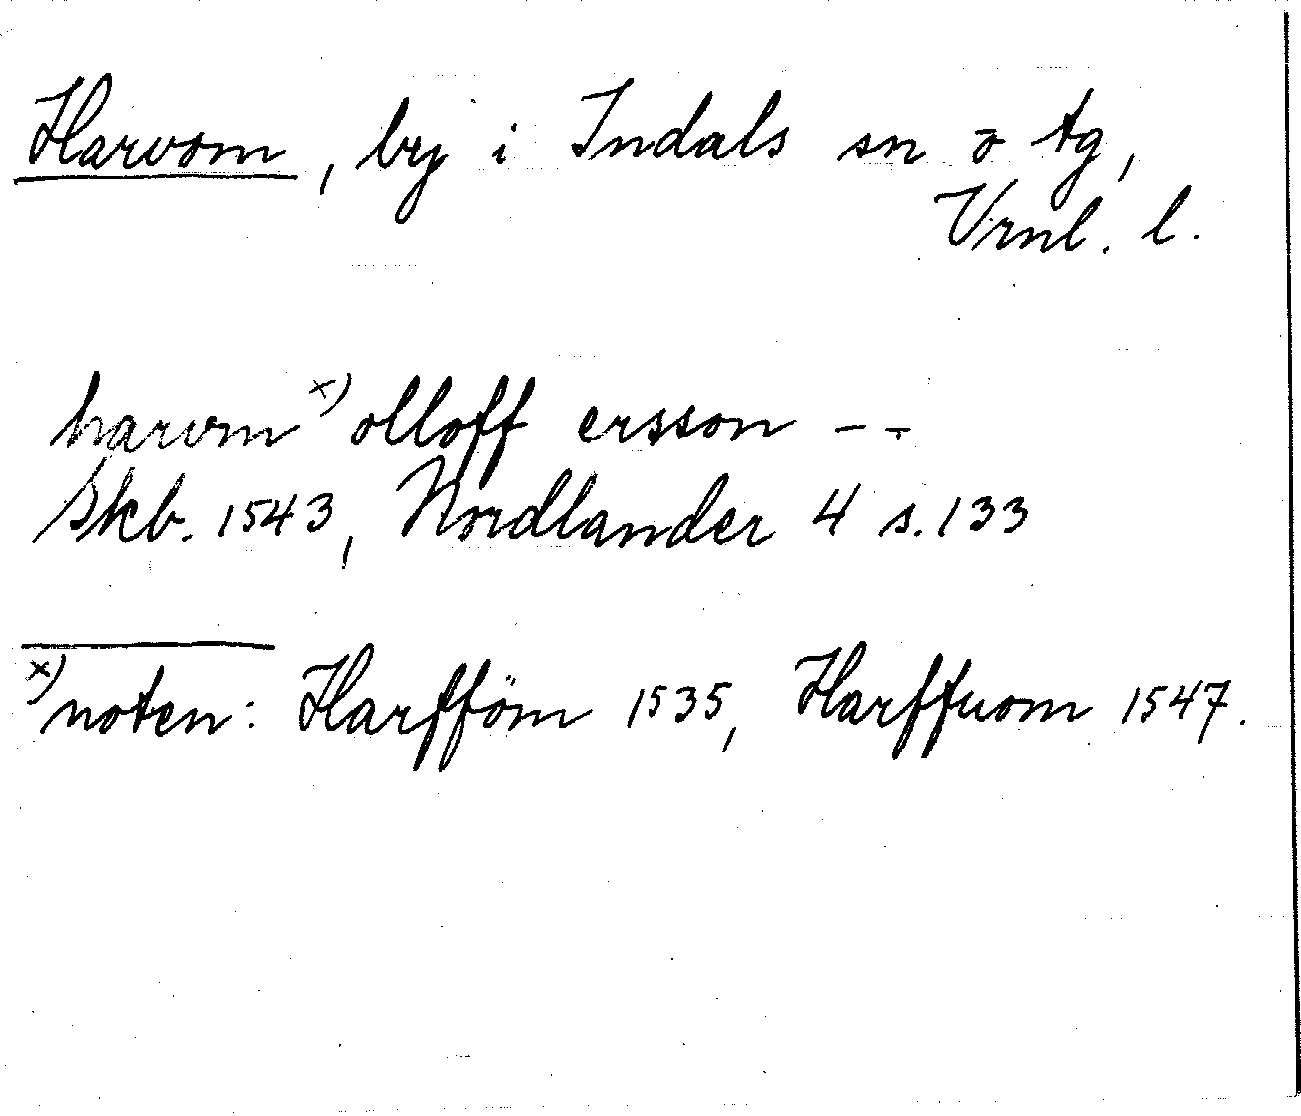 Harvom, by i Indals sn o tg,
Vrnl. l.
harvm x) olloff ersson --
Skb. 1543, Nordlander 4 s. 133
x) noten: Harfföm 1535, Harffuom 1547.